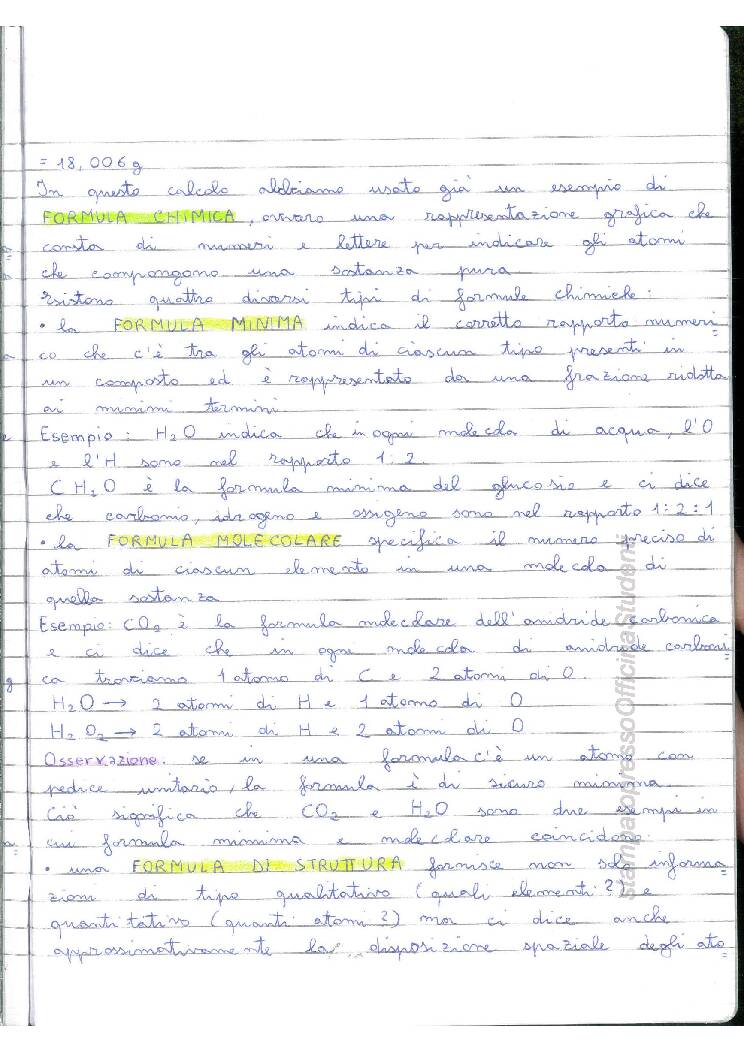 = 18,006 g
In questo calcolo abbiamo usato già un esempio di
FORMULA CHIMICA, ovvero una rappresentazione grafica che
consta di numeri e lettere per indicare gli atomi
che compongono una sostanza pura
Esistono quattro diversi tipi di formule chimiche:
• la FORMULA MINIMA indica il corretto rapporto numeri=
co che c'è tra gli atomi di ciascun tipo presenti in
un composto ed è rappresentato da una frazione ridotta
ai minimi termini
Esempio: H₂O indica che in ogni molecola di acqua, l'O
e l'H sono nel rapporto 1:2.
CH₂O è la formula minima del glucosio e ci dice
che carbonio, idrogeno e ossigeno sono nel rapporto 1:2:1
• la FORMULA MOLECOLARE specifica il numero preciso di
atomi di ciascun elemento in una molecola di
quella sostanza
Esempio: CO₂ è la formula molecolare dell'anidride carbonica
e ci dice che in ogni molecola di anidride carboni=
ca troviamo 1 atomo di C e 2 atomi di O.
H₂O → 2 atomi di H e 1 atomo di O
H₂O₂ → 2 atomi di H e 2 atomi di O
Osservazione: se in una formula c'è un atomo con
pedice unitario, la formula è di sicuro minima
Ciò significa che CO₂ e H₂O sono due esempi in
cui formula minima e molecolare coincidono.
• una FORMULA DI STRUTTURA fornisce non solo informa=
zioni di tipo qualitativo (quali elementi?) e
quantitativo (quanti atomi?) ma ci dice anche
approssimativamente la disposizione spaziale degli ato=
stampatopressoOfficinaStudenti